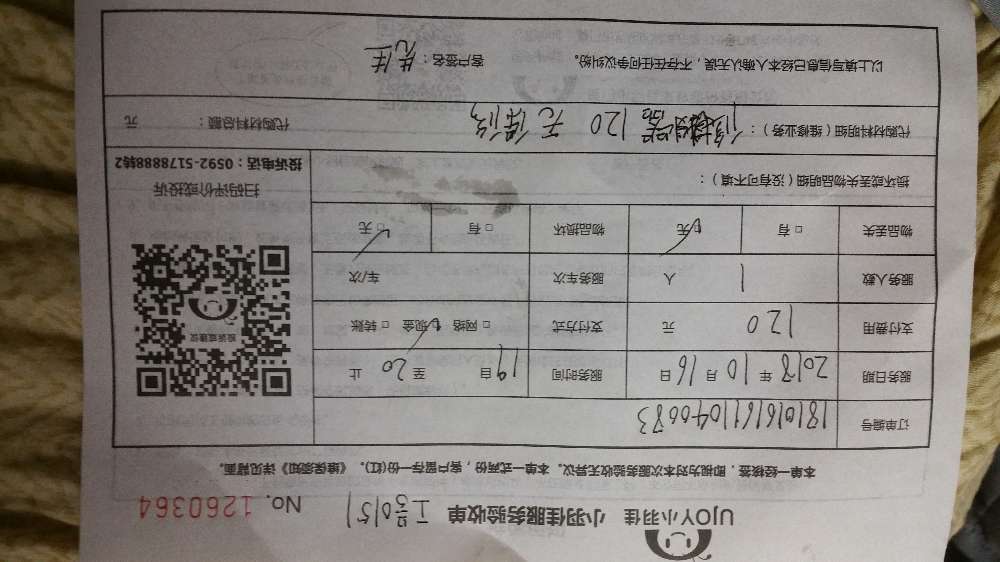 UJOY小羽佳 小羽佳服务验收单 工号0151 No. 1260364
本一单一经核签，即视为对本次服务验收无异议。本单一式两份，客户留存一份(红)。《维保须知》详见背面。
订单编号 181016161104000083
服务日期 2018 年 10 月 16 日 服务时间 19 自 至 20 止
支付费用 120 元 支付方式 □ 网络 □ 现金 □ 转账
服务人数 1 人 服务车次 车/次
物品丢失 □ 有 □ 无 物品损坏 □ 有 □ 无
投诉或建议
扫码评价或投诉
投诉电话：0592-5178888转2
损坏或丢失物品明细（没有可不填）：
代购材料明细（维修业务）： 120 无保修 代购材料总额 元
以上填写信息已经本人确认无误，不存在任何争议纠纷。 客户签名：先生